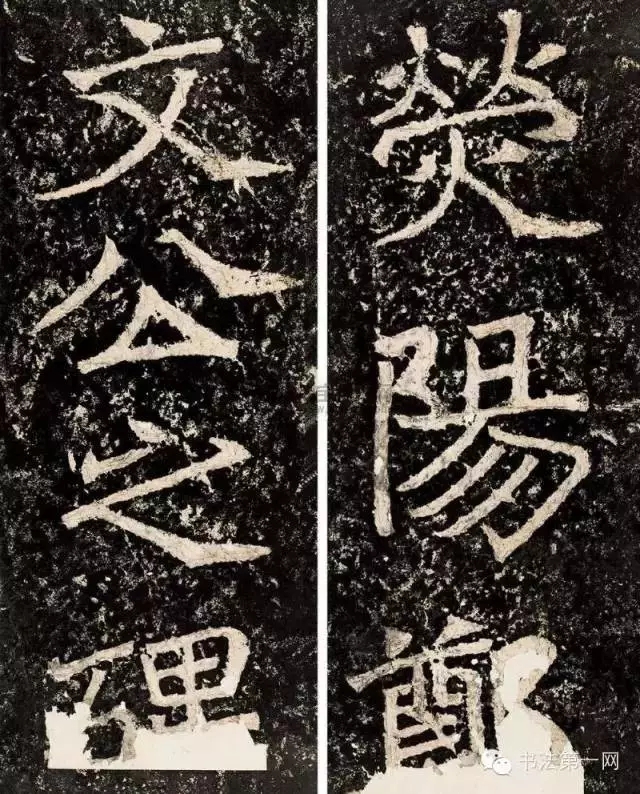 熒陽鄭
文公之碑
书法第一网